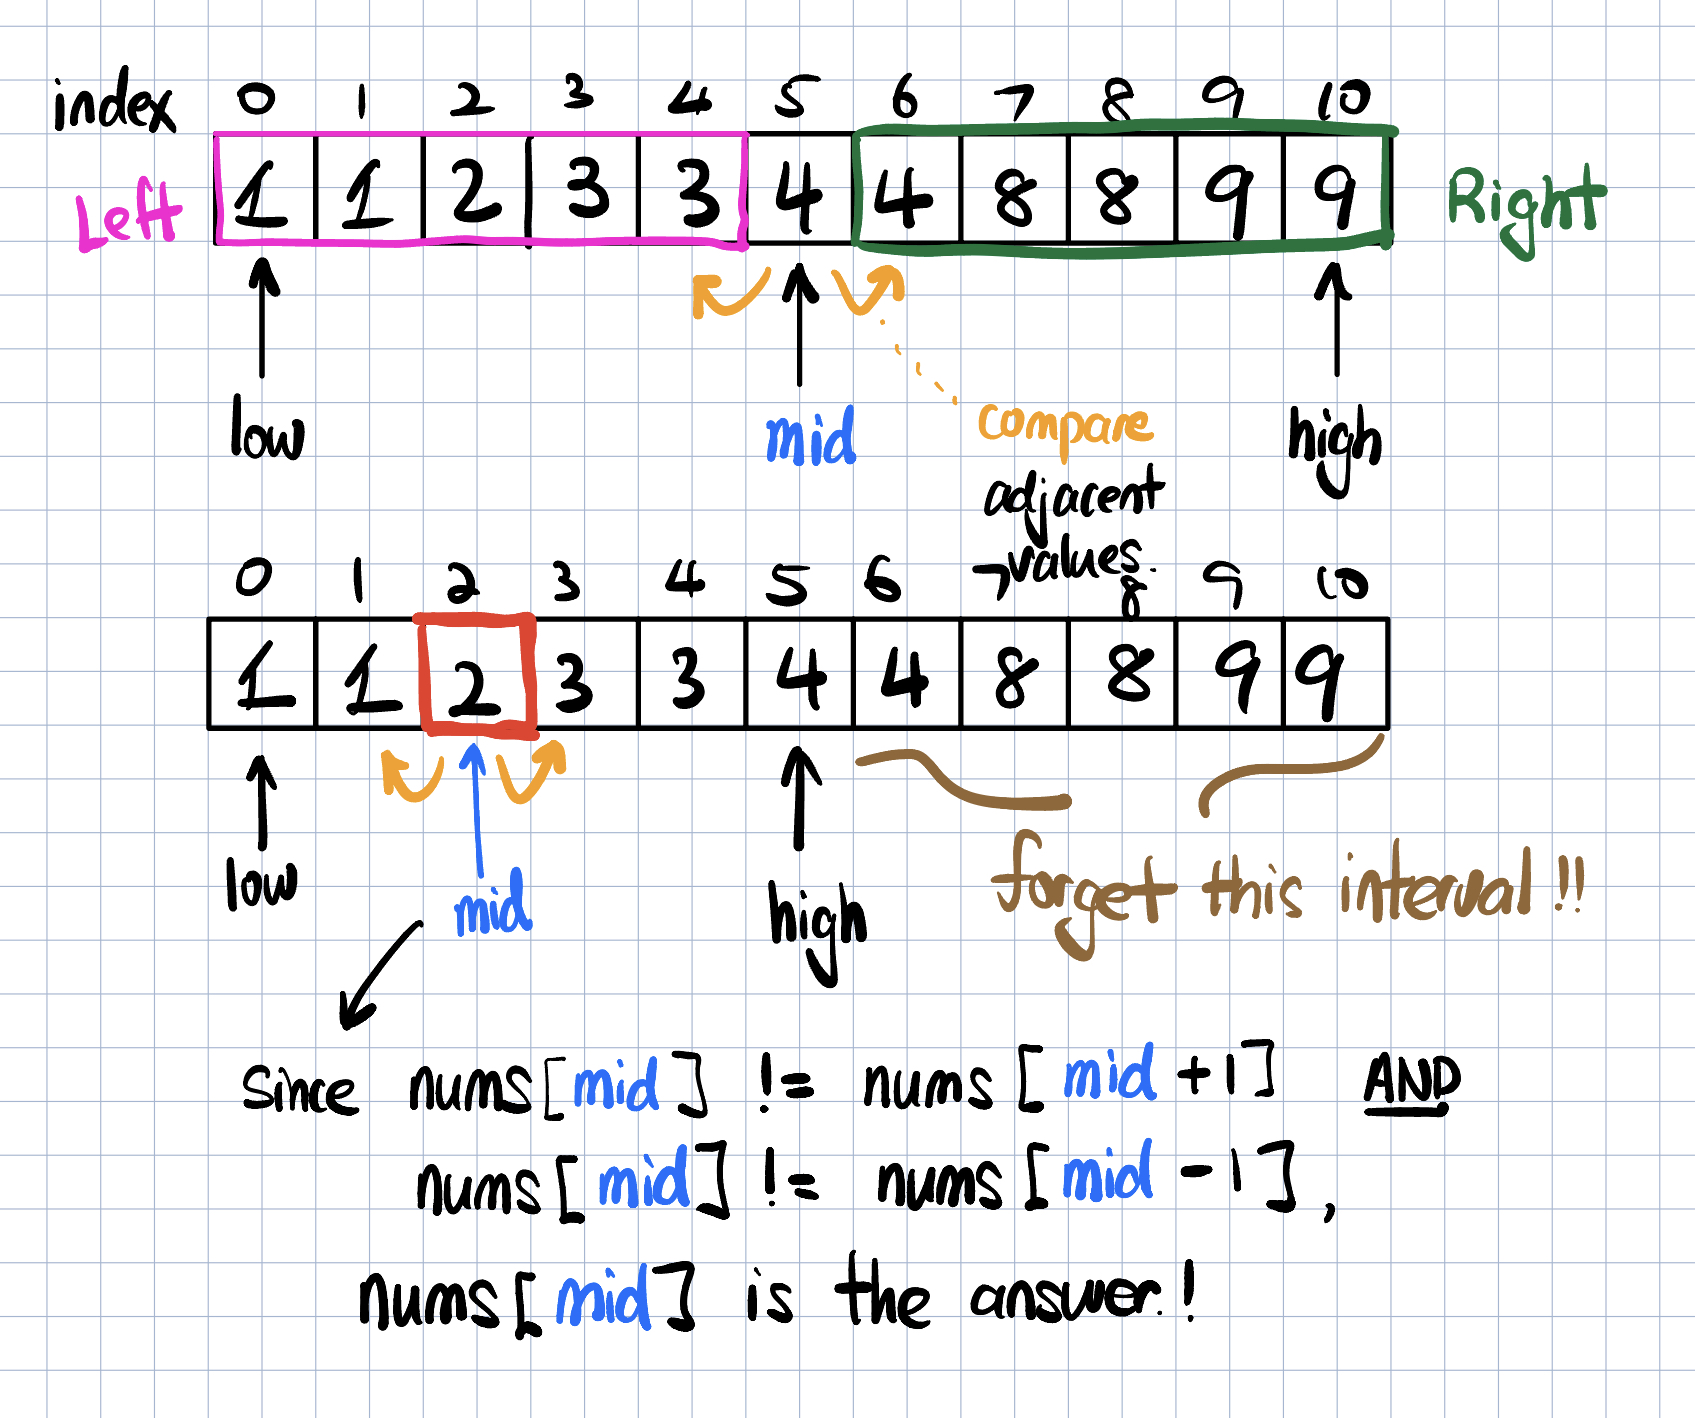 index 0 1 2 3 4 5 6 7 8 9 10
Left 1 1 2 3 3 4 4 8 8 9 9 Right
low mid compare high
adjacent
values.
0 1 2 3 4 5 6 7 8 9 10
1 1 2 3 3 4 4 8 8 9 9
low mid high forget this interval!!
Since nums[mid] != nums[mid+1] AND
nums[mid] != nums[mid-1],
nums[mid] is the answer.!